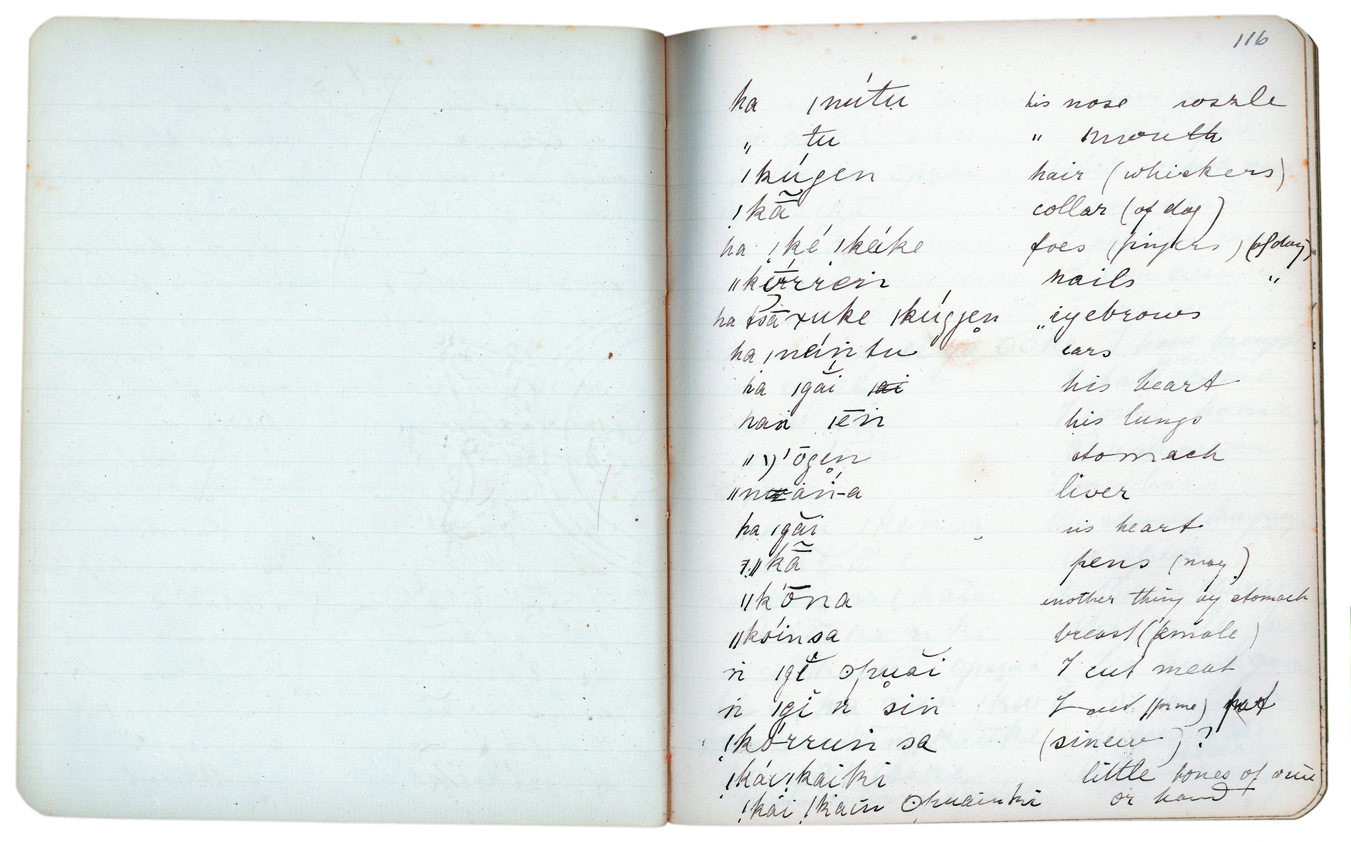 116
ha ǀnútu his nose nozzle
〃 tu 〃 mouth
ǀkúgen hair (whiskers)
ǃkã̄ collar (of dog)
ha ǃké ǃkáke toes (fingers) (of dog)
ǁkúrren nails 〃
ha tsáxuke ǀkúgen eyebrows
ha ǀnúntu ears
ha ǀgăi his heart
haa ǀēn his lungs
stomach
liver
ha ǀgăi his heart
ǁkã̄ pens (mag)
ǁkōna another thing by stomach
ǁkóinsa breast (female)
ń ǀgĕ opuăi I cut meat
ń ǀgĭ n sin I cut (prme)
ǃkórrunsa (sinew)?
ǃkáiǃkaikn little bones of
ǃkái ǃkain or hand